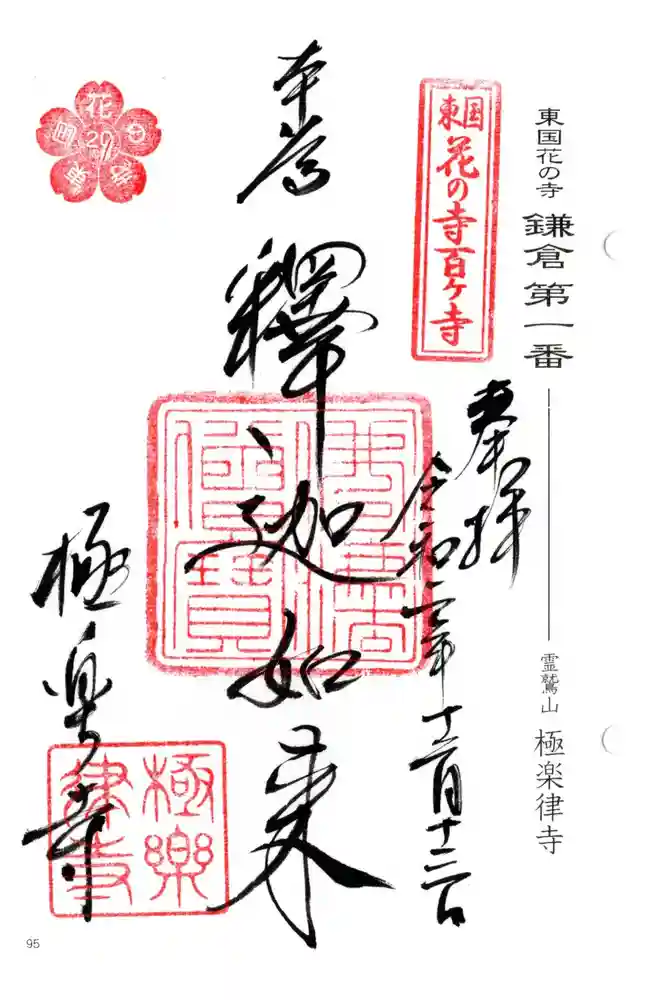 東国花の寺 鎌倉第一番
霊鷲山 極楽律寺
東国
花の寺百ケ寺
奉拝
令和二年十二月十二日
本尊
釋迦如来
極楽寺
極樂
律寺
花
29
95